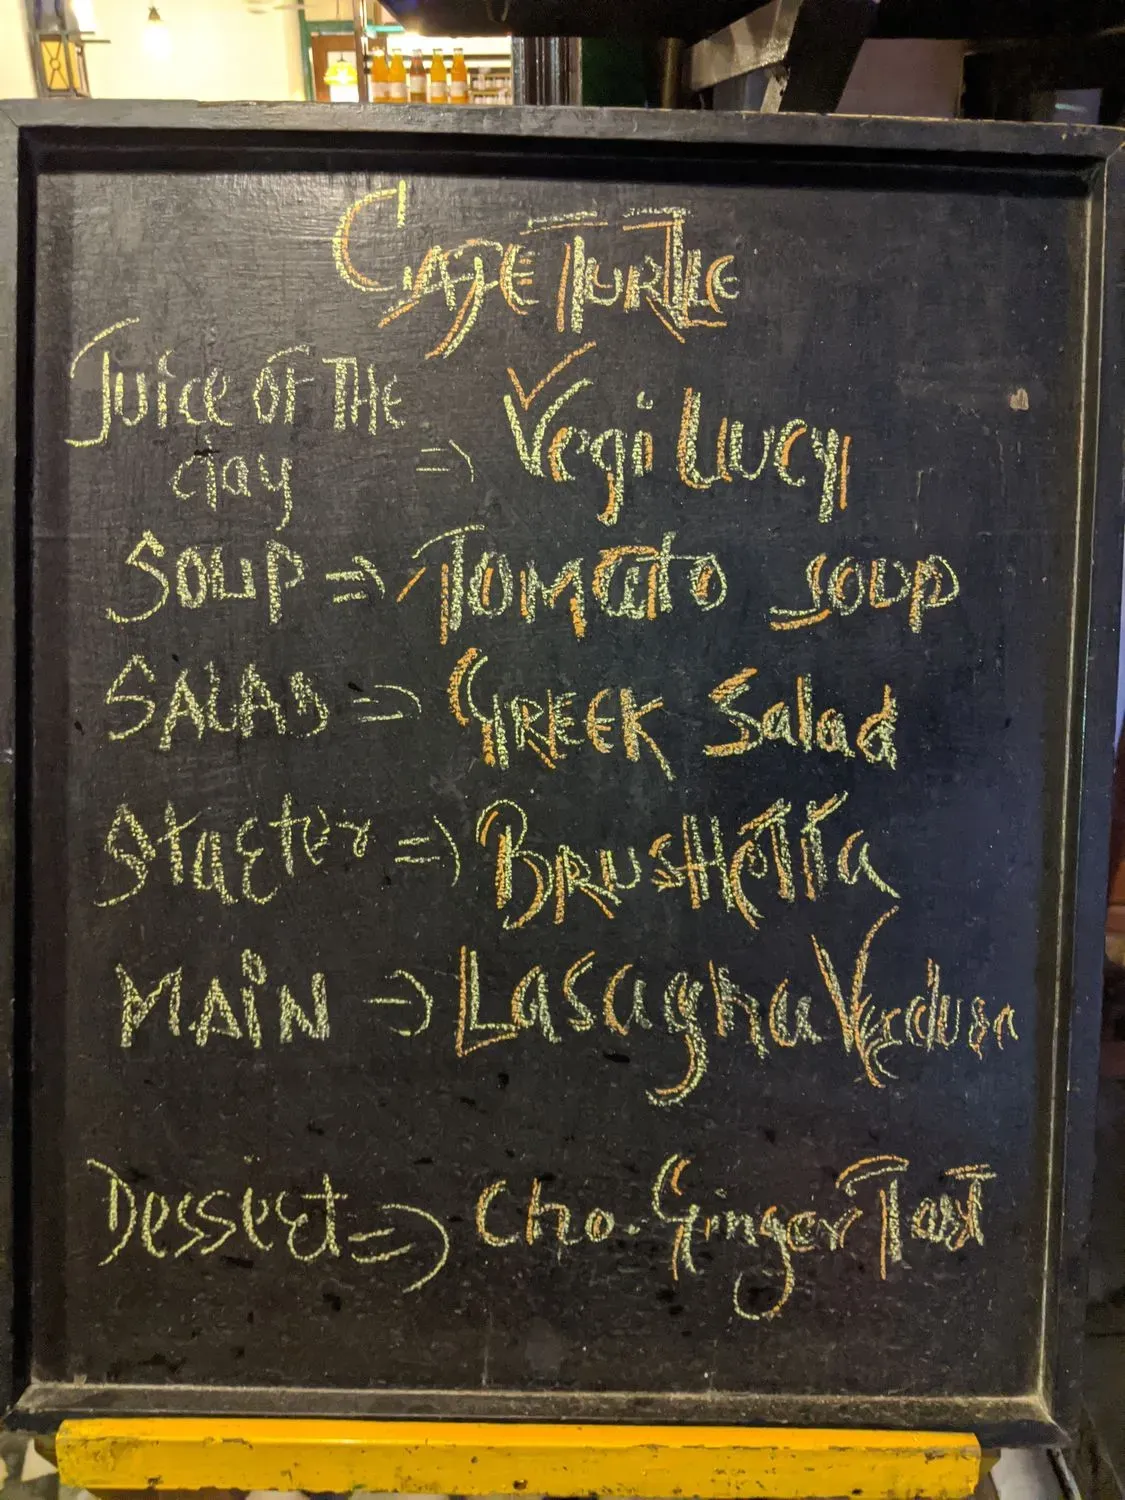 CAFE TURTLE
Juice OF THE
day => Vegi Lucy
SOUP => TOMATO SOUP
SALAD => GREEK Salad
Starter => BRUSHETTA
MAIN => Lasagna Verdura
Dessert => Cho. Ginger Tart